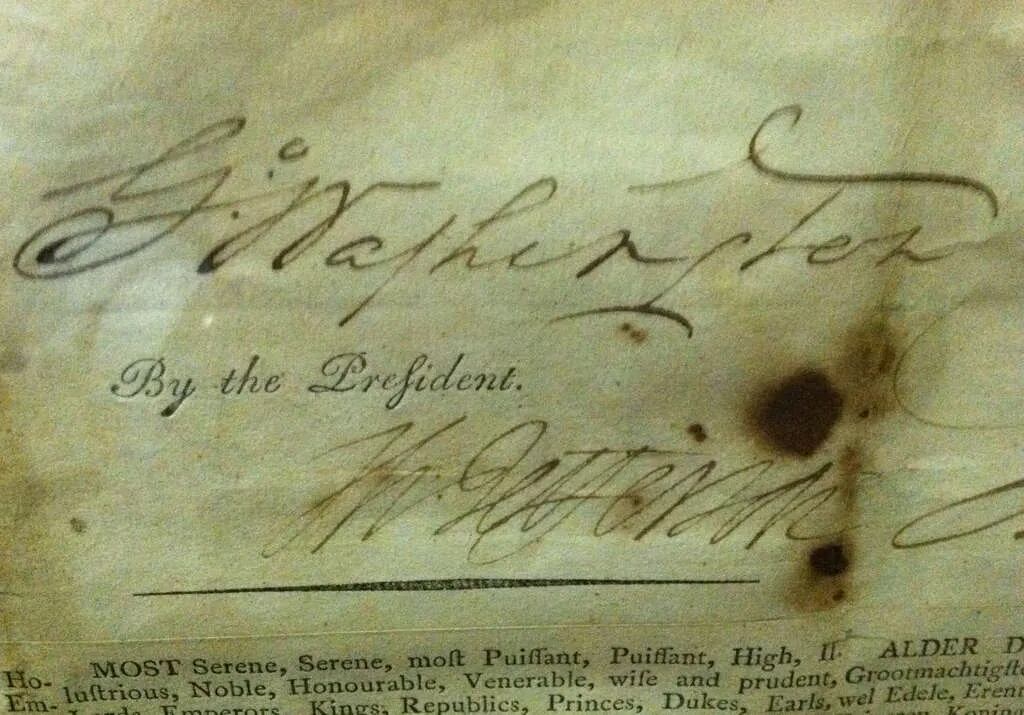 G:Washington
By the Preſident.
Th. Jefferson
MOST Serene, Serene, moſt Puiſſant, Puiſſant, High, Il- ALDER D
Ho- luſtrious, Noble, Honourable, Venerable, wiſe and prudent, Grootmachtigſte
Em- Lords, Emperors, Kings, Republics, Princes, Dukes, Earls, wel Edele, Erent